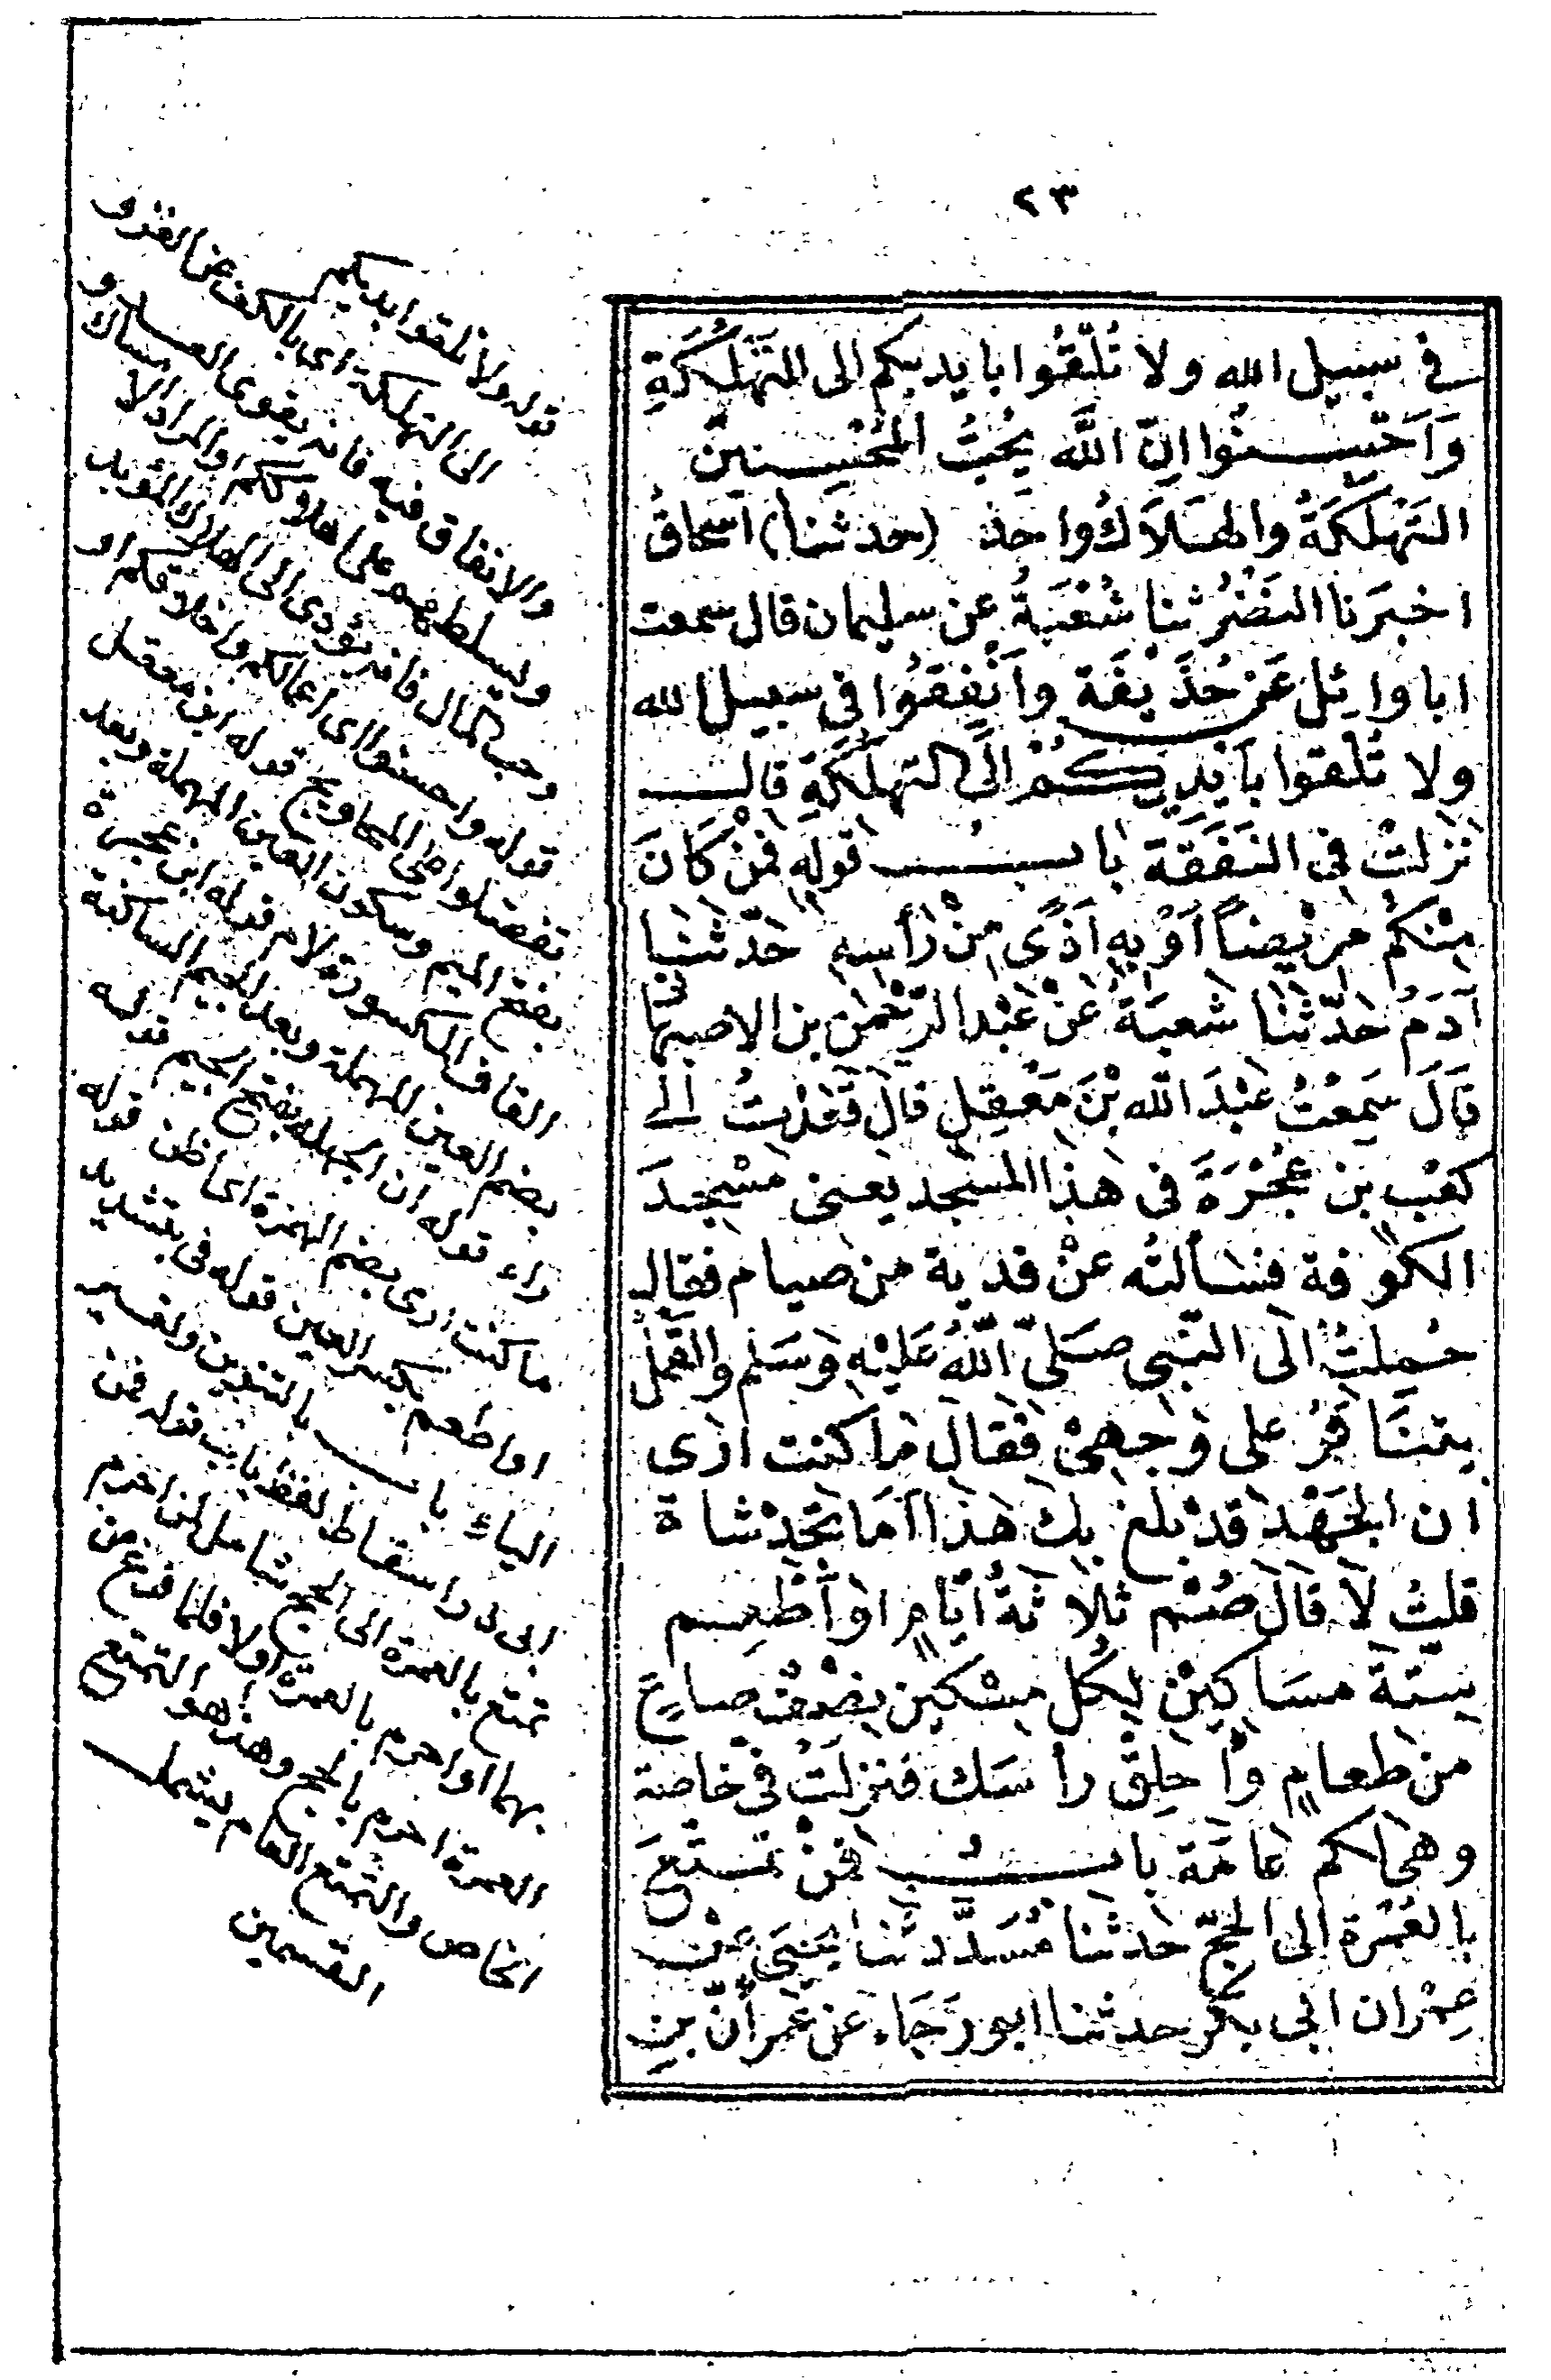 ٢٣
في سبيل الله ولا تُلْقُوا بايديكم الى التَّهْلُكَةِ
وَاَحْسِنُوا اِنَّ اللَّه يُحِبُّ المُحْسِنينَ
التَهْلُكَةُ والهَلاَكُ واحد (حدثنا) اسحاقُ
اخبرَنا النَضْرُ ثنا شُعْبَةُ عن سليمان قال سمعت
ابا وائل عَن حُذَيْفَة وَاَنْفِقُوا فى سبيل الله
ولا تُلْقوا بِاَيْدِيكُمْ اِلَى التهلُكَةِ قال
نَزلتْ فى النَفَقَة باب قوله فمَنْ كَانَ
مِنْكُمْ مَريْضاً اَوْ بِهِ اَذًى مِنْ رَأسِهِ حَدّثنَا
آدَمُ حَدّثنَا شعبَةُ عَنْ عَبْد الرّحْمٰنِ بن الاصبهانى
قَالَ سَمِعْتُ عَبْدَ اللّه بْنَ مَعْقِلٍ قالَ قَعَدْتُ الى
كعْبِ بن عُجْرَةَ فى هذا المسْجد يعنى مسْجِدَ
الكوفة فسَألتُه عنْ فدية من صيام فقال
حُملتُ الى النّبى صَلىّ اللّهُ عَليْهِ وَسَلم والقمْلُ
يتَنَاثَرُ على وَجهىْ فقالَ ما كنت اُرٰى
ان الجَهْدَ قدْ بلغ بكَ هَذا اَمَا تَجد شاة
قلتُ لاَ قالَ صُمْ ثلاثَةَ اَيّامٍ اَوْ اَطْعِم
سِتّةَ مسَاكِيْنَ لِكُل مِسْكين نِصْفُ صاعٍ
من طعامٍ وَاحلِقْ رأسَك فنزلَتْ فىّ خاصة
وهى لكم عامّة باب فمَنْ تمتّعَ
بالعُمْرَة الى الحَجّ حدثنا مُسَدَّد ثنا يَحْيَى عَن
عِمْران ابى بكر حدثنا ابو رَجَاء عن عمرانَ بنِ
قوله ولا تلقوا بايديكم
الى التهلكة اى بالكف عن الغزو
والانفاق فيه فانه يقوى العدو و
يسلطهم على هلاككم او المراد الامساك
وحب المال فانه يؤدى الى الهلاك المؤبد
قوله واحسنوا اى اعمالكم واخلاقكم او
تفضلوا على المحاويج قوله ابن معقل
بفتح الميم وسكون العين المهملة وبعد
القاف المكسورة لام قوله ابن عجرة
بضم العين المهملة وبعد الجيم الساكنة
راء قوله ان الجهد بفتح الجيم قوله
ما كنت ارى بضم الهمزة اى اظن قوله
او اطعم بكسر العين قوله فى بتشديد
الياء باب بالتنوين ولغير
ابى ذر اسقاط لفظ باب قوله فمن
تمتع بالعمرة الى الحج شامل لمن احرم
بهما او احرم بالعمرة اولا فلما فرغ من
العمرة احرم بالحج وهذا هو التمتع
الخاص والتمتع العام يشمل
القسمين